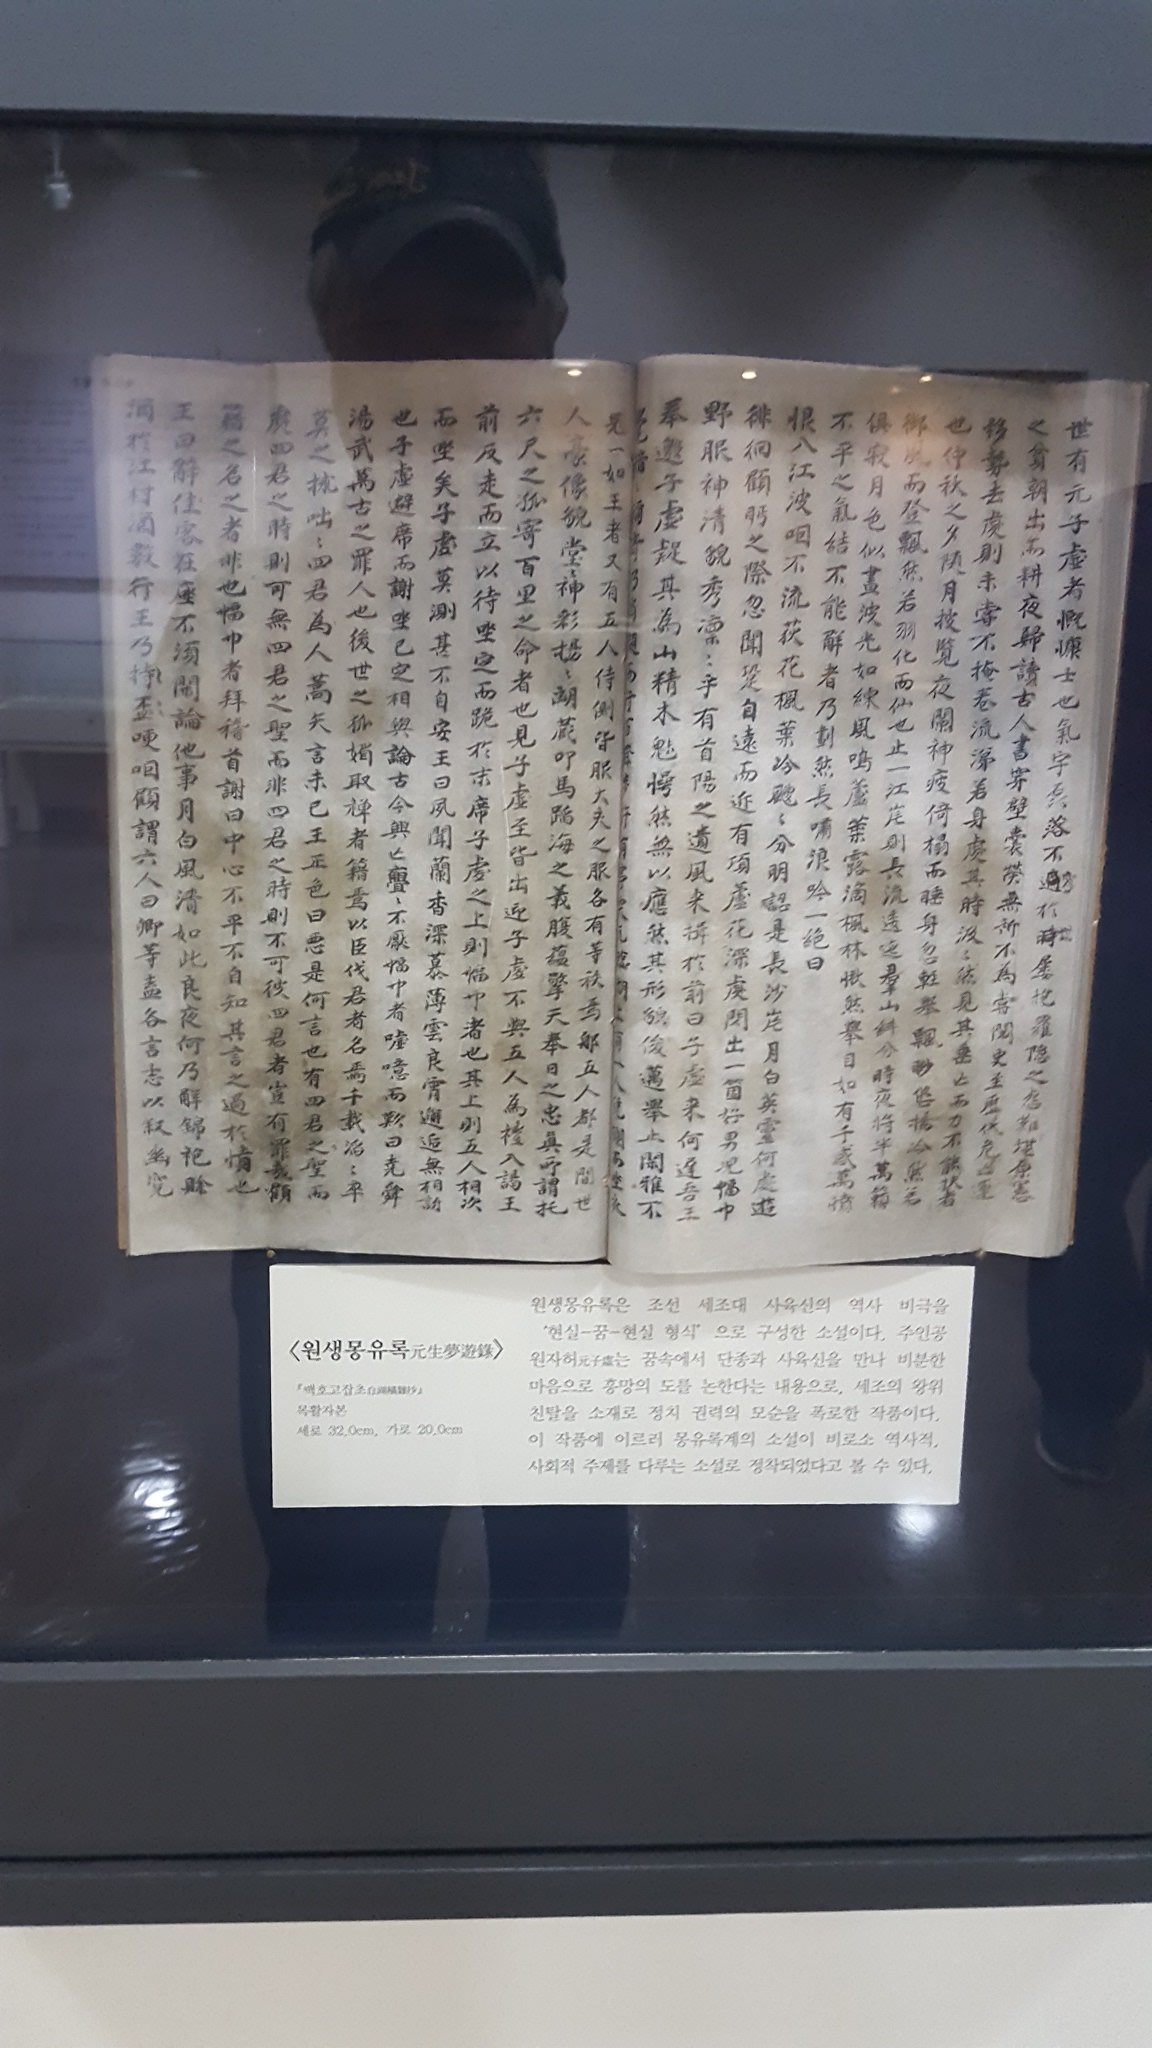 世有元子虛者慷慨士也氣宇磊落不適於時屢抱羅隱之怨難堪原憲
之貧朝出而耕夜歸讀古人書穿壁囊螢無所不為嘗閱史至歷代危亡運
移勢去處則未嘗不掩卷流涕若身處其時汲汲然見其垂亡而力不能扶者
也仲秋之夕隨月披覽夜闌神疲倚榻而睡身忽輕舉飄緲悠揚泠然若
御風而登飄然若羽化而仙也止一江岸則長流逶迤群山糾分時夜將半萬籟
俱寂月色似晝波光如練風鳴蘆葉露滴楓林愀然舉目如有千載萬憤
不平之氣結不能解者乃劃然長嘯浪吟一絕曰
恨入江波咽不流荻花楓葉冷颼颼分明認是長沙岸月白英靈何處遊
徘徊顧眄之際忽聞跫自遠而近有頃蘆花深處閃出一箇好男兒幅巾
野服神清貌秀凜凜乎有首陽之遺風來揖於前曰子虛來何遲吾王
奉邀子虛疑其為山精木魅愕然無以應然其形貌俊邁舉止閑雅不
兄一如王者又有五人侍側皆服大夫之服各有等秩焉那五人都是間世
人豪像貌堂堂神彩揚揚胸藏叩馬蹈海之義腹蘊擎天奉日之忠真所謂托
六尺之孤寄百里之命者也見子虛至皆出迎子虛不與五人為禮入謁王
前反走而立以待坐定而跪於末席子虛之上則幅巾者也其上則五人相次
而坐矣子虛莫測甚不自安王曰夙聞蘭香深慕薄雲良宵邂逅無相訝
也子虛避席而謝坐已定相與論古今興亡亹亹不厭幅巾者噓噫而歎曰堯舜
湯武萬古之罪人也後世之狐媚取禪者籍焉以臣伐君者名焉千載滔滔卒
莫之救咄咄四君為人嚆矢言未已王正色曰惡是何言也有四君之聖而
處四君之時則可無四君之聖而非四君之時則不可彼四君者豈有罪哉顧
籍之名之者非也幅巾者拜稽首謝曰中心不平不自知其言之過於憤也
王曰辭佳客在座不須閑論他事月白風清如此良夜何乃解錦袍賒
酒於江村酒數行王乃持盃哽咽顧謂六人曰卿等盍各言志以叙幽冤
〈원생몽유록元生夢遊錄〉
『백호고잡초白湖稿雜抄』
목활자본
세로 32.0cm, 가로 20.0cm
원생몽유록은 조선 세조대 사육신의 역사 비극을
'현실-꿈-현실 형식' 으로 구성한 소설이다. 주인공
원자허元子虛는 꿈속에서 단종과 사육신을 만나 비분한
마음으로 흥망의 도를 논한다는 내용으로, 세조의 왕위
찬탈을 소재로 정치 권력의 모순을 폭로한 작품이다.
이 작품에 이르러 몽유록계의 소설이 비로소 역사적,
사회적 주제를 다루는 소설로 정착되었다고 볼 수 있다.